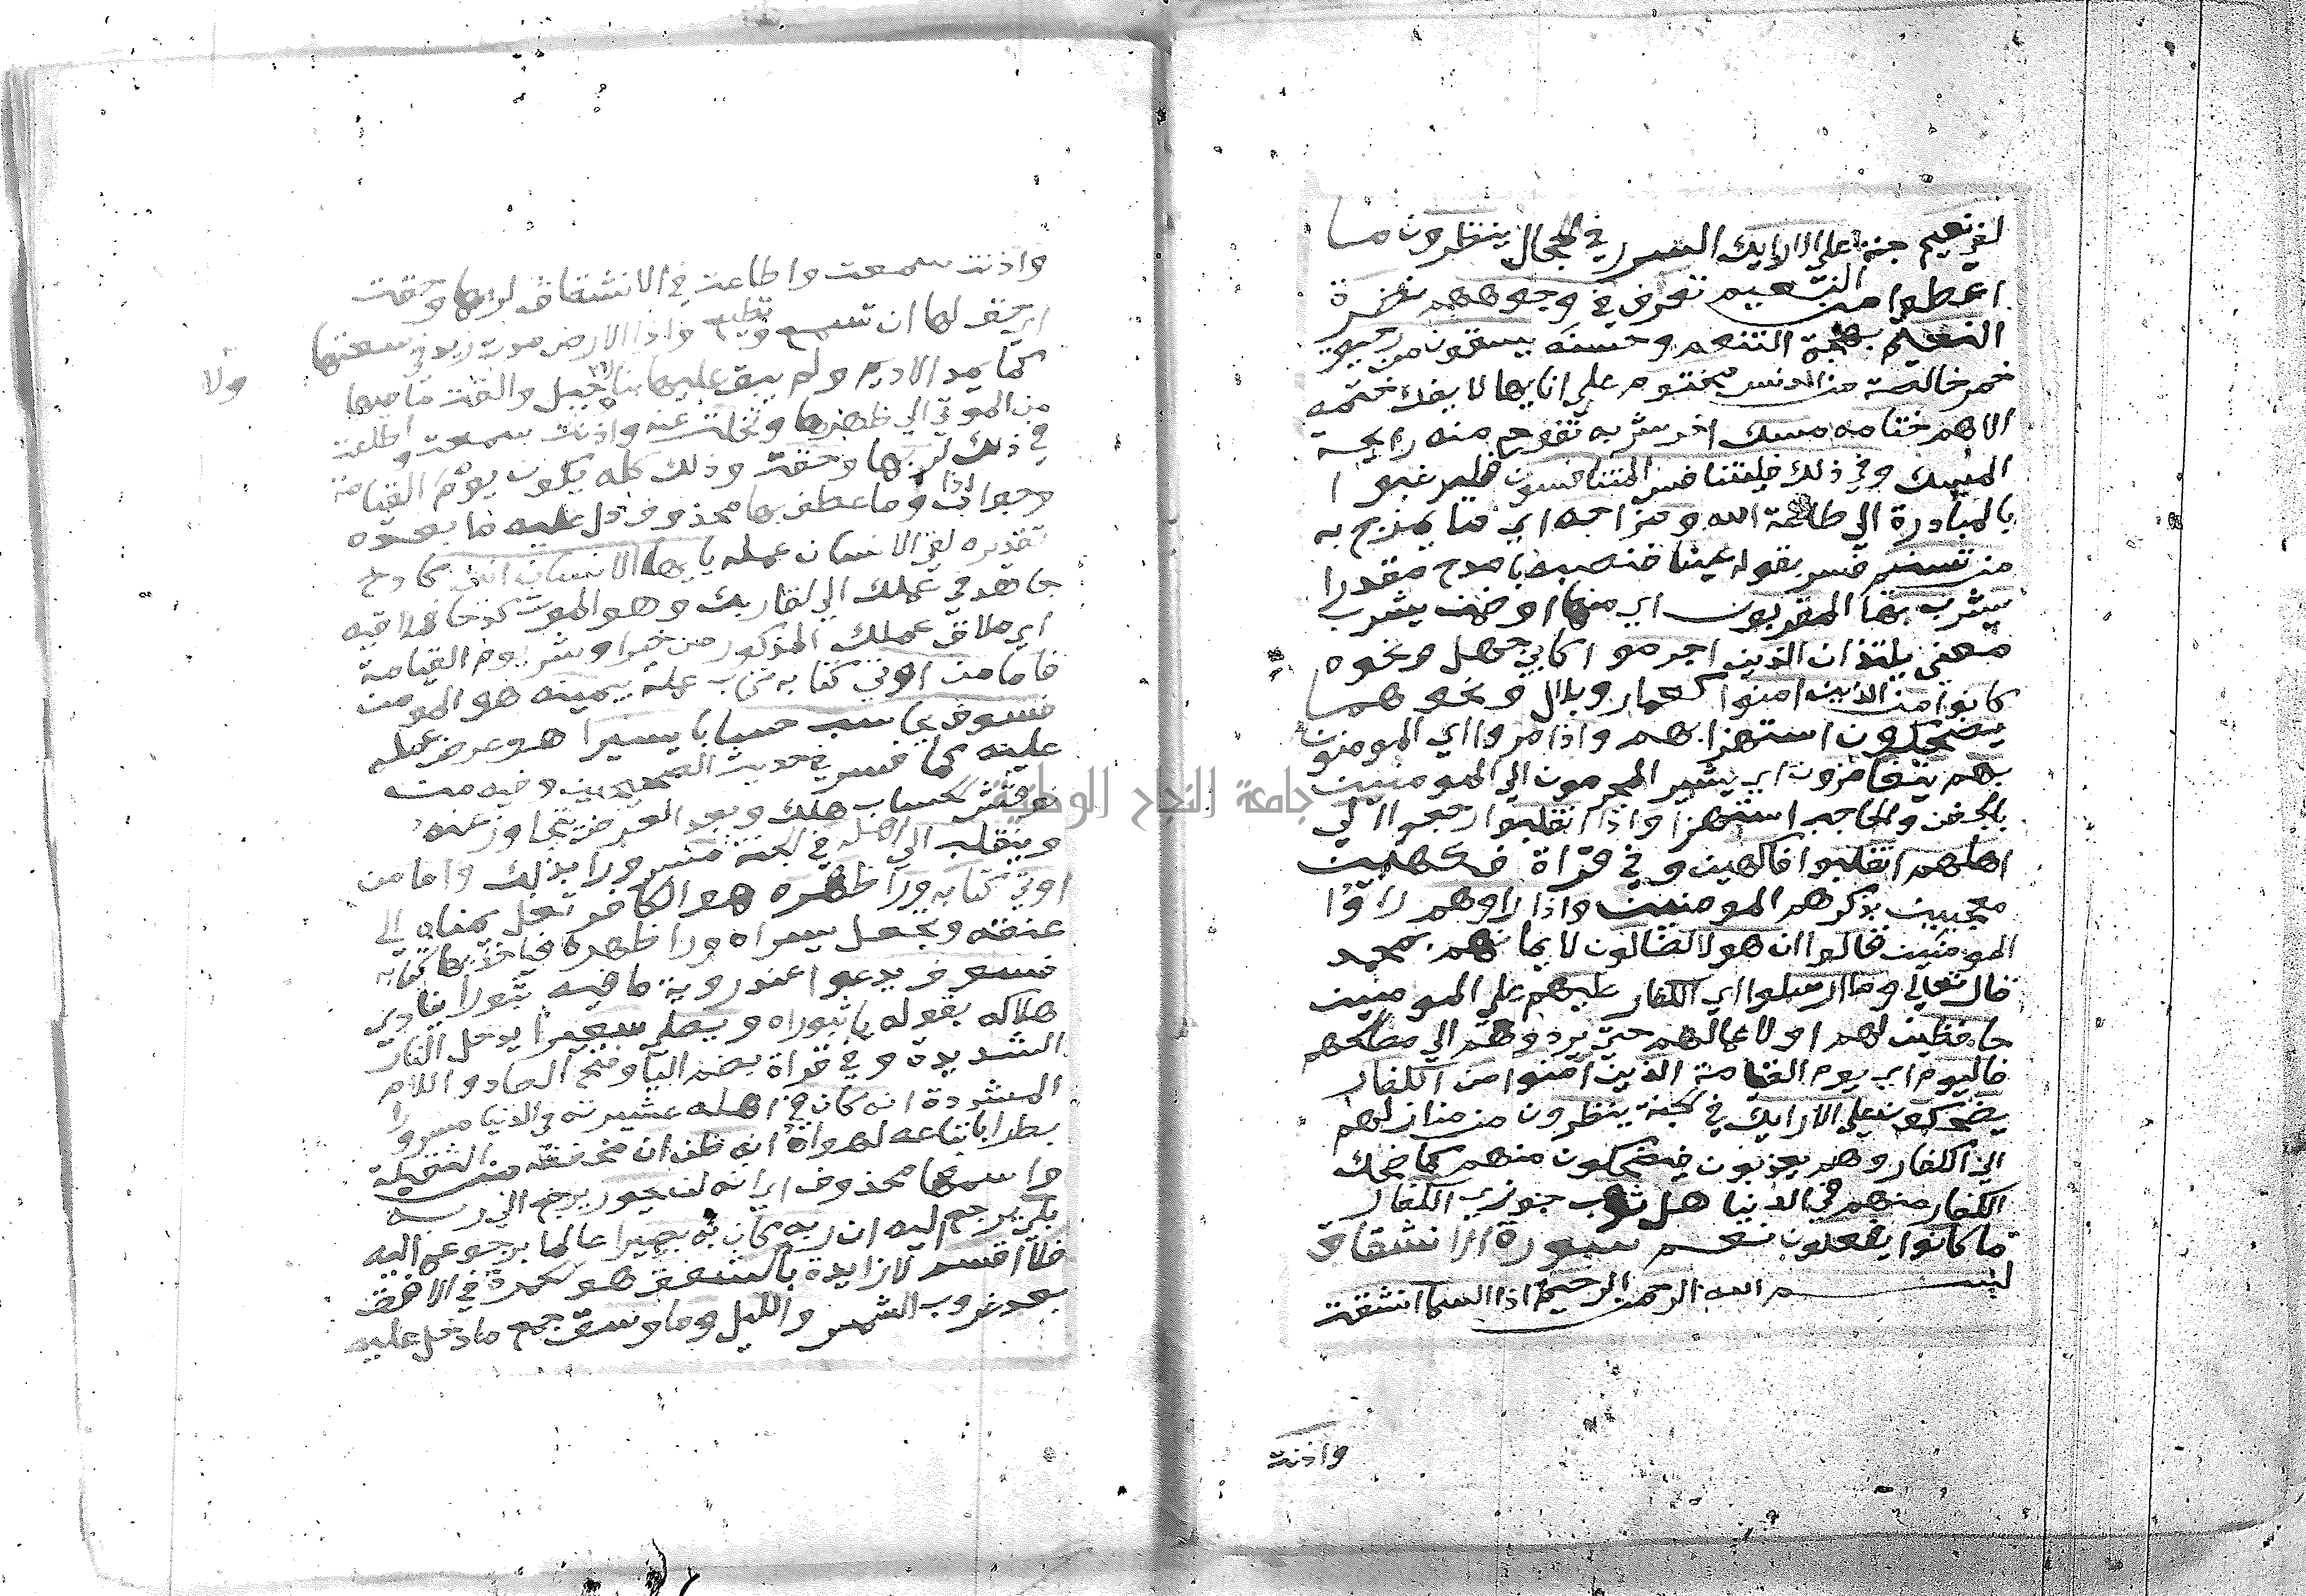 لفي نعيم جنة علي الارايك السرر في الحجال ينظرون ما
اعطوا من النعيم تعرف في وجوههم نضرة
النعيم بهجة التنعم وحسنه يسقون من رحيق
خمر خالصة من الدنس مختوم علي انايها لا يفك ختمه
الا هم ختامه مسك اخر شربه تفوح منه رايحة
المسك وفي ذلك فليتنافس المتنافسون فليرغبوا
بالمبادرة الي طاعة الله ومزاجه اي ما يمزج به
من تسنيم فسر بقوله عينا فنصبه بامدح مقدرا
يشرب بها المقربون اي منها او ضمن يشرب
معني يلتذ ان الذين اجرموا كابي جهل ونحوه
كانوا من الذين امنوا كعمار وبلال ونحوهما
يضحكون استهزا بهم واذا مروا اي المومنون
بهم يتغامزون اي يشير المجرمون الي المومنين
بالجفن والحاجب استهزا واذا انقلبوا رجعوا الي
اهلهم انقلبوا فاكهين وفي قراة فكهين
معجبين بذكرهم المومنين واذا راوهم راوا
المومنين قالوا ان هولا لضالون لايمانهم بمحمد
قال تعالي وما ارسلوا اي الكفار عليهم علي المومنين
حافظين لهم او لاعمالهم حتي يردوهم الي مصالحهم
فاليوم اي يوم القيامة الذين امنوا من الكفار
يضحكون علي الارايك في الجنة ينظرون من منازلهم
الي الكفار وهم يعذبون فيضحكون منهم كما ضحك
الكفار منهم في الدنيا هل ثوب جوزي الكفار
ما كانوا يفعلون نعم سورة الانشقاق
بسم الله الرحمن الرحيم اذا السما انشقت
واذنت
واذنت سمعت واطاعت في الانشقاق لربها وحقت
اي حق لها ان تسمع وتطيع واذا الارض مدت زيد في سعتها
كما يمد الاديم ولم يبق عليها بنا ولا جبل والقت ما فيها
من الموتي الي ظهرها وتخلت عنه واذنت سمعت واطاعت
في ذلك لربها وحقت وذلك كله يكون يوم القيامة
وجواب اذا وما عطف بها محذوف دل عليه ما بعده
تقديره لقي الانسان عمله يا ايها الانسان انك كادح
جاهد في عملك الي لقا ربك وهو الموت كدحا فملاقيه
اي ملاق عملك المذكور من خير او شر يوم القيامة
فاما من اوتي كتابه كتاب عمله بيمينه هو المومن
فسوف يحاسب حسابا يسيرا هو عرض عمله
عليه كما فسر في حديث الصحيحين وفيه من
نوقش الحساب هلك وبعد العرض يتجاوز عنه
وينقلب الي اهله في الجنة مسرورا بذلك واما من
اوتي كتابه ورا ظهره هو الكافر تغل يمناه الي
عنقه وتجعل يسراه ورا ظهره فياخذ بها كتابه
فسوف يدعوا عند روية ما فيه ثبورا ينادي
هلاكه بقوله يا ثبوراه ويصلي سعيرا يدخل النار
الشديدة وفي قراة بضم اليا وفتح الصاد واللام
المشددة انه كان في اهله عشيرته في الدنيا مسرورا
بطرا باتباعه لهواه انه ظن ان مخففة من الثقيلة
واسمها محذوف اي انه لن يحور يرجع الي ربه
بلي يرجع اليه ان ربه كان به بصيرا عالما برجوعه اليه
فلا اقسم لا زايدة بالشفق هو الحمرة في الافق
بعد غروب الشمس والليل وما وسق جمع ما دخل عليه
جامعة النجاح الوطنية